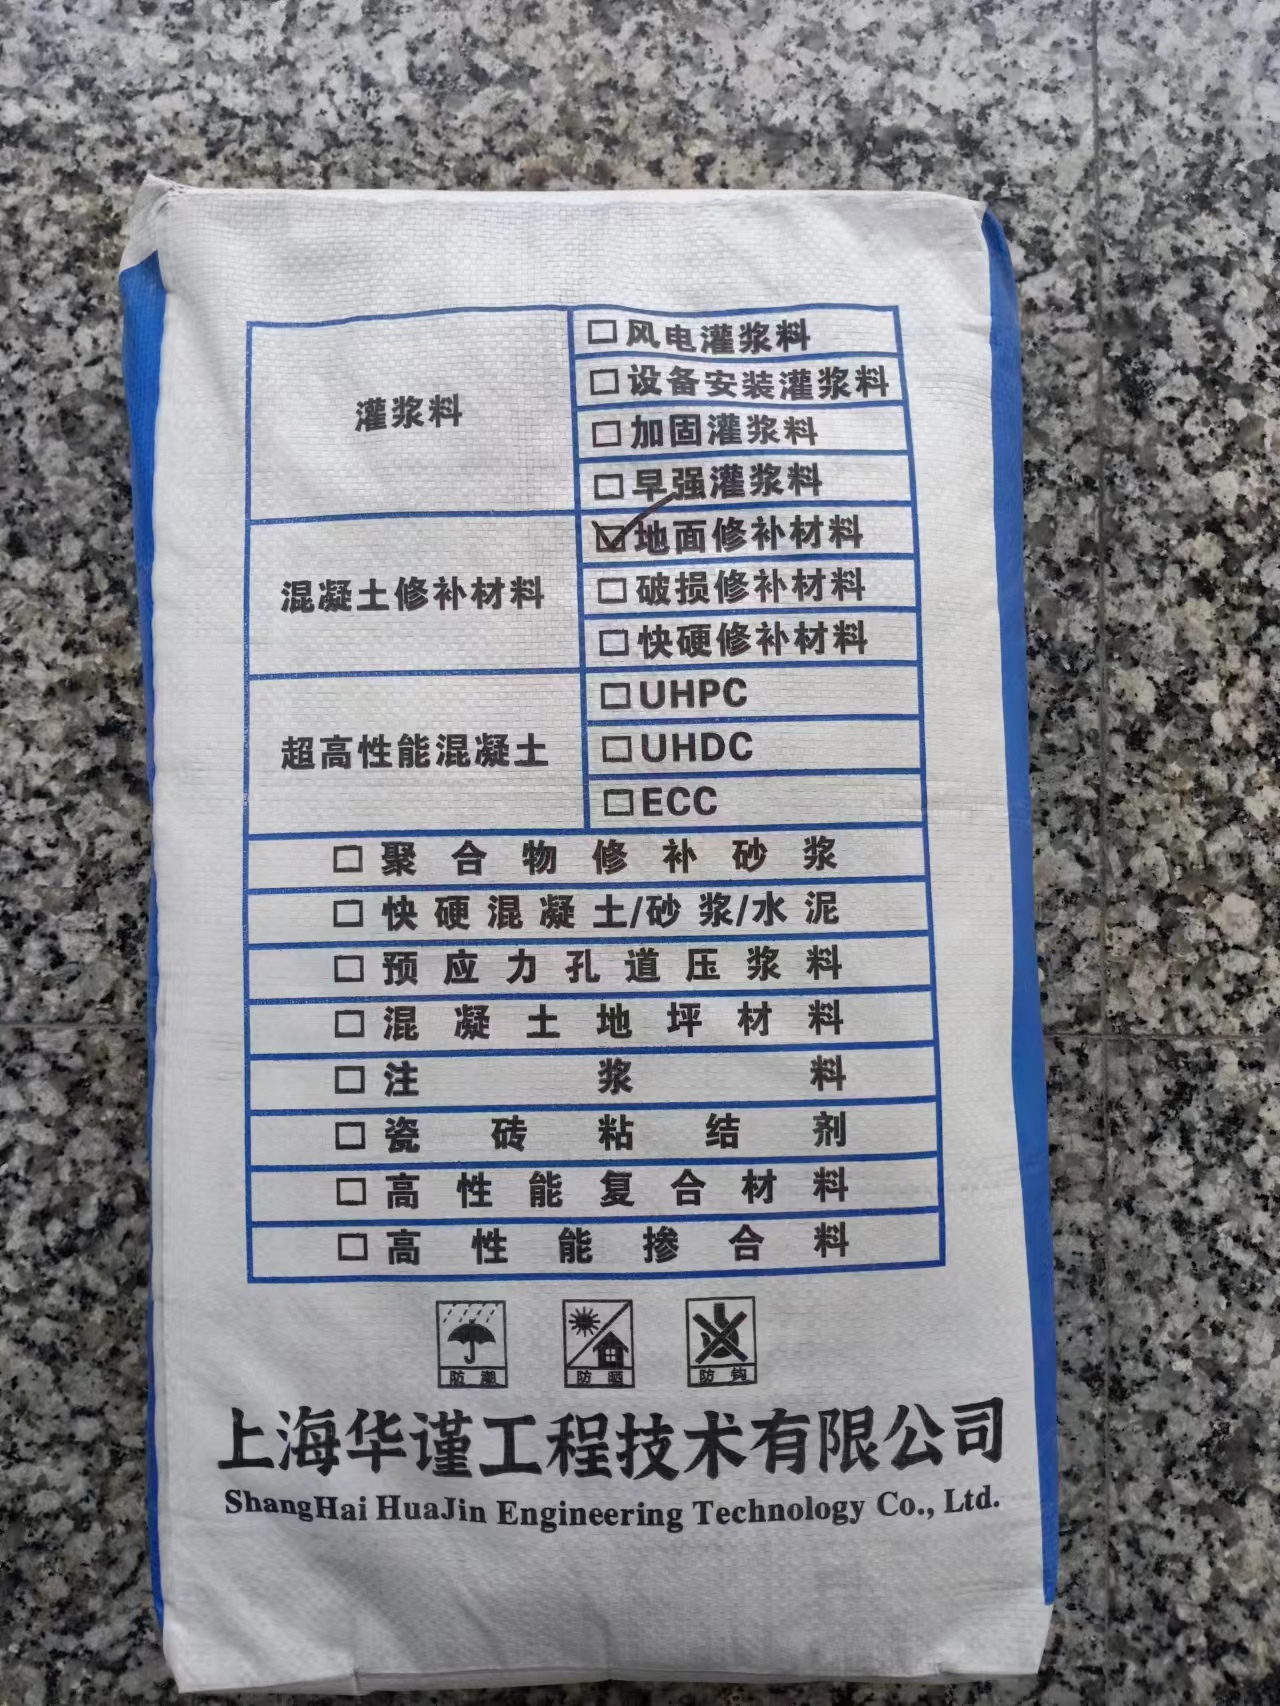 灌浆料
□风电灌浆料
□设备安装灌浆料
□加固灌浆料
□早强灌浆料
混凝土修补材料
☑地面修补材料
□破损修补材料
□快硬修补材料
超高性能混凝土
□UHPC
□UHDC
□ECC
□聚合物修补砂浆
□快硬混凝土/砂浆/水泥
□预应力孔道压浆料
□混凝土地坪材料
□注浆料
□瓷砖粘结剂
□高性能复合材料
□高性能掺合料
防潮 防晒 防钩
上海华谨工程技术有限公司
ShangHai HuaJin Engineering Technology Co., Ltd.